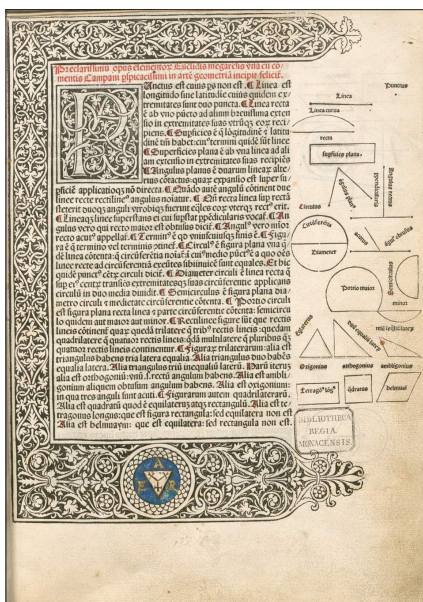 Preclarissimus opus elementorum Euclidis megarensis una cum co
mentis Campani pspicacissimi in arte geometria incipit felicit.
Punctus est cuius ps non est. Linea est
longitudo sine latitudie cuius quidem ex
tremitates sunt duo puncta. Linea recta
ē ab vno pūcto ad alium breuissima exten
sio in extremitates suas vtrūq3 eorum reci
piens. Supficies ē q̄ lōgitudinē ⁊ latitu
dinē tm̄ habet: cuius termini quidē sūt linee
Superficies plana ē ab vna linea ad ali
am extensio in extremitates suas recipiēs
Angulus planus ē duarum linearum alter
nus cōtactus: quarum expansio est super su
pficiē applicatioq3 nō directa. Quādo autē angulū cōtinent due
linee recte rectiline' angulus noiatur. Qn̄ recta linea sup rectā
steterit duoq3 anguli vtrobiq3 fuerint eq̄les: eorum vterq3 rect' erit.
Lineaq3 linee superstans ei cui supstat ppēdicularis vocat̄. An
gulus vero qui recto maior est obtusus dicit̄. Angul' vero mior
recto acut' appellat̄. Termin' ē qd vniuscuiusq3 finis ē. Figu
ra ē q̄ termino vel terminis ptinet̄. Circul' ē figura plana vna q̄
dē linea cōtenta: q̄ circūferētia noiat̄: in cui' medio pūct' ē a quo oēs
linee recte ad circūferētiā exeūtes sibiinuicē sunt equales. Et hic
quidē punct' cētrum circuli dicit̄. Diameter circuli ē linea recta q̄
sup ei' centrum transiēs extremitatesq3 suas circūferētie applicans
circulū in duo media diuidit. Semicirculus ē figura plana dia
metro circuli ⁊ medietate circūferentie cōtenta. Portio circuli
est figura plana recta linea ⁊ parte circūferētie cōtenta: semicircu
lo quidem aut maior aut minor. Rectilinee figure sūt que rectis
lineis cōtinent̄ quarum quedā trilatere q̄ trib' rectis lineis: quedam
quadrilatere q̄ quatuor rectis lineis: qdā multilatere que pluribus q̄
quatuor rectis lineis continentur. Figurarum trilaterarum: alia est
triangulus habens tria latera equalia. Alia triangulus duo habēs
equalia latera. Alia triangulus trium inequaliū laterū. Harū iterum
alia est orthogoniū: vnū .s. rectū angulum habens. Alia est ambli
gonium aliquem obtusum angulum habens. Alia est oxigonium:
in qua tres anguli sunt acuti. Figurarum autem quadrilaterarū.
Alia est quadratū quod ē equilaterū atq3 rectangulū. Alia est te
tragonus longus: que est figura rectangula: sed equilatera non est.
Alia est helmuaym: que est equilatera: sed rectangula non est.
A
E R
Punctus
Linea
Linea curua
recta
supficies plana.
Circulus
Circūferētia
Diameter
Portio maior
Semicirculus
minor
Oxigonius
orthogonius
ambligonius
Tetragon' lōg'
q̄dratus
helmuaī
BIBLIOTHECA
REGIA
MONACENSIS